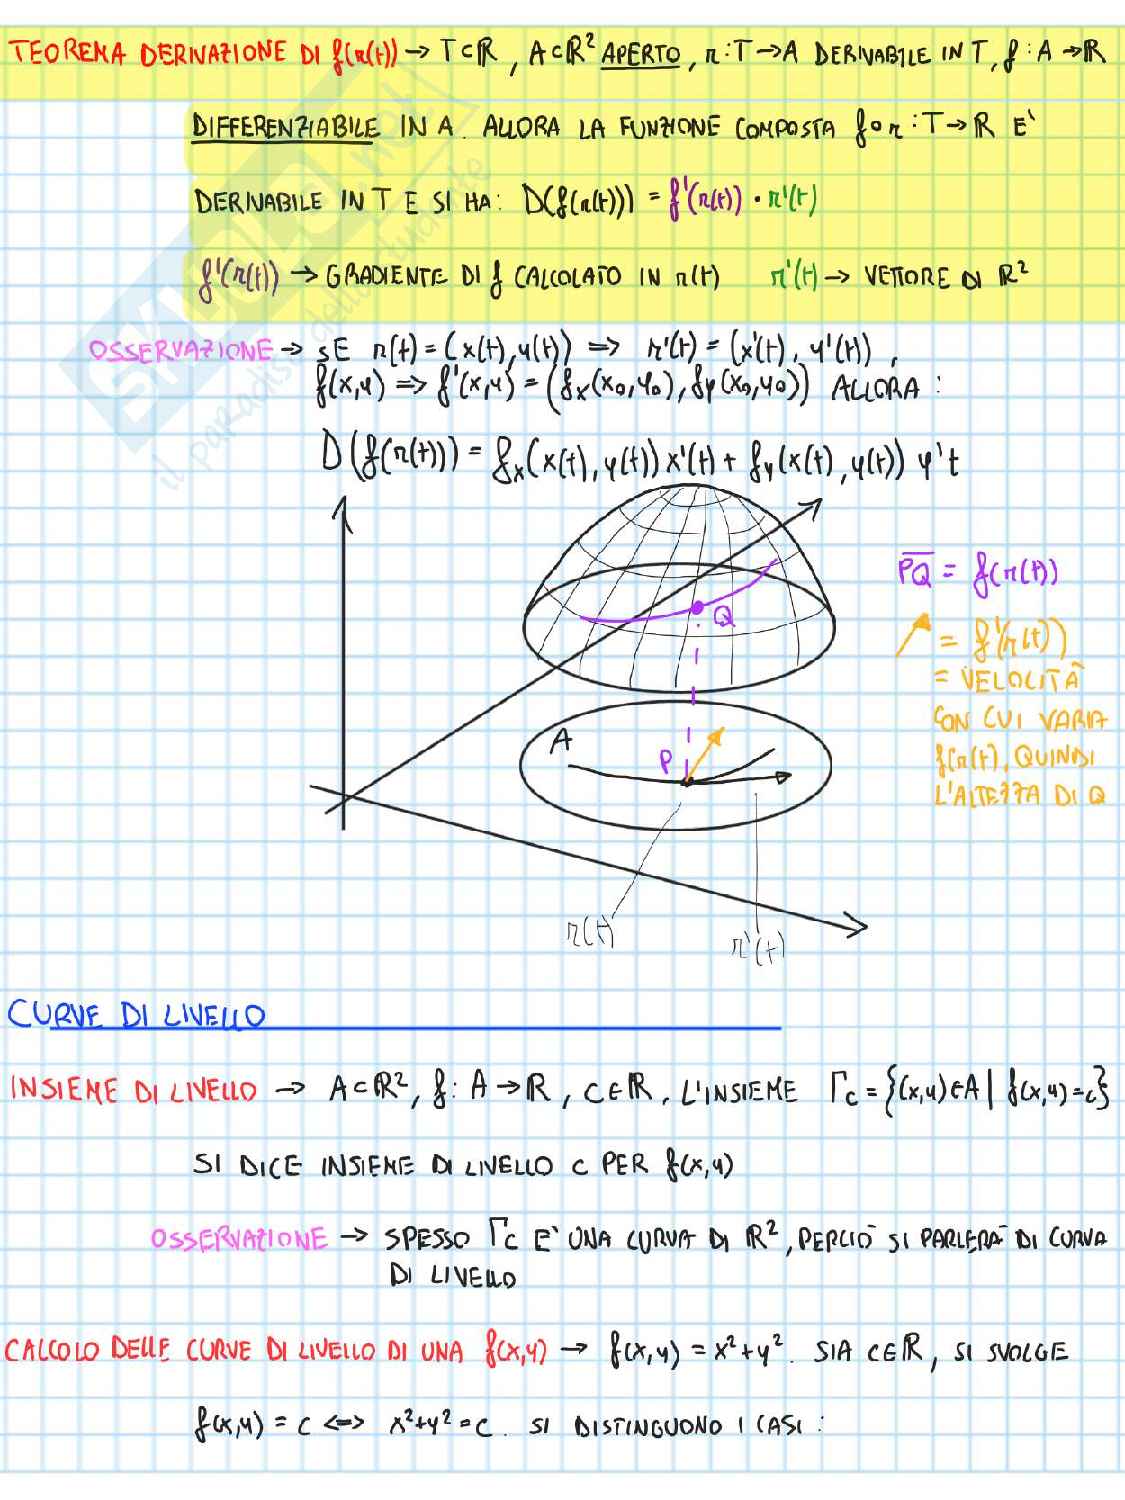 TEOREMA DERIVAZIONE DI f(r(t)) → T⊂ℝ, A⊂ℝ² APERTO, r:T→A DERIVABILE IN T, f:A→ℝ
DIFFERENZIABILE IN A. ALLORA LA FUNZIONE COMPOSTA f∘r:T→ℝ E'
DERIVABILE IN T E SI HA: D(f(r(t))) = f'(r(t)) · r'(t)
f'(r(t)) → GRADIENTE DI f CALCOLATO IN r(t) r'(t) → VETTORE DI ℝ²
OSSERVAZIONE → SE r(t) = (x(t), y(t)) ⇒ r'(t) = (x'(t), y'(t)),
f(x,y) ⇒ f'(x,y) = (fx(x0,y0), fy(x0,y0)) ALLORA:
D(f(r(t))) = fx(x(t), y(t)) x'(t) + fy(x(t), y(t)) y't
PQ = f(r(t))
Q
= f'(r(t))
= VELOCITÀ
CON CUI VARIA
f(r(t)), QUINDI
L'ALTEZZA DI Q
A
P
r(t)
r'(t)
CURVE DI LIVELLO
INSIEME DI LIVELLO → A⊂ℝ², f: A→ℝ, C∈ℝ. L'INSIEME Γc = {(x,y)∈A | f(x,y)=c}
SI DICE INSIEME DI LIVELLO C PER f(x,y)
OSSERVAZIONE → SPESSO Γc E' UNA CURVA DI ℝ², PERCIÒ SI PARLERÀ DI CURVA
DI LIVELLO
CALCOLO DELLE CURVE DI LIVELLO DI UNA f(x,y) → f(x,y) = x²+y². SIA C∈ℝ, SI SVOLGE
f(x,y) = C ⟺ x²+y²=C. SI DISTINGUONO I CASI:
SKUOLA.net
il paradiso dello studente